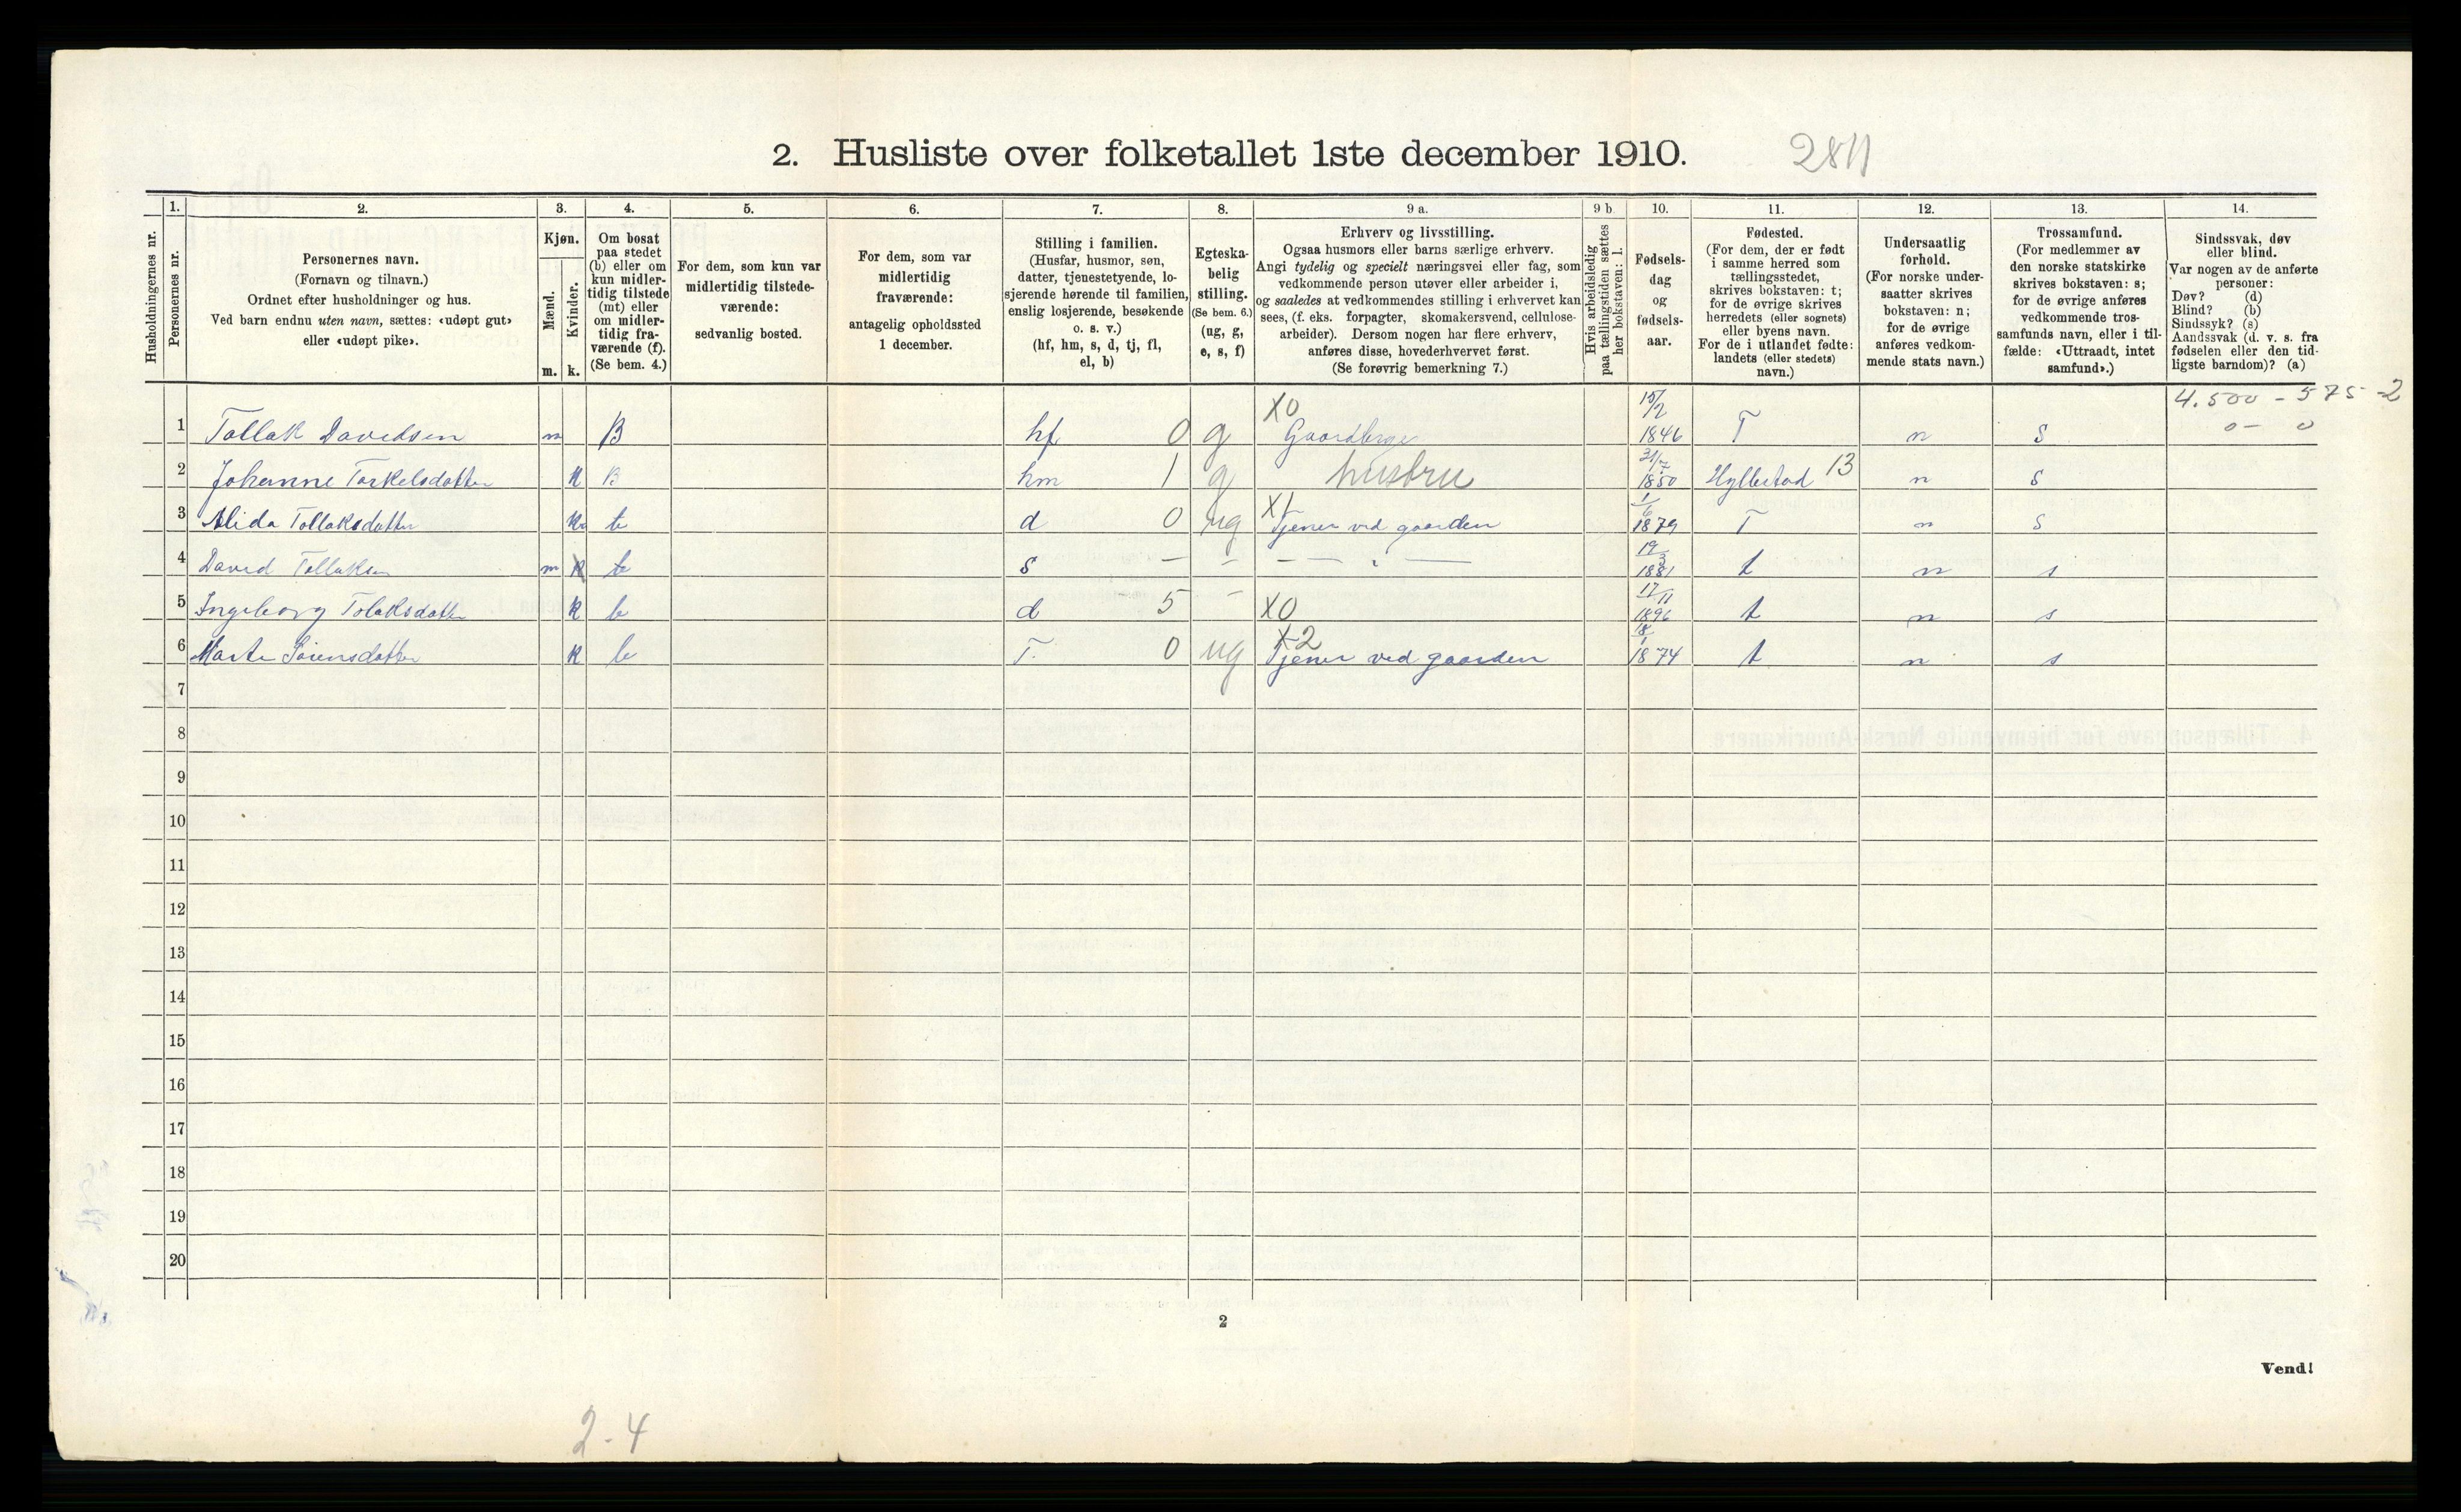 2. Husliste over folketallet 1ste december 1910.
2811
Husholdningernes nr.
1.
Personernes nr.
2.
Personernes navn.
(Fornavn og tilnavn.)
Ordnet efter husholdninger og hus.
Ved barn endnu uten navn, sættes: «udøpt gut»
eller «udøpt pike».
3.
Kjøn.
Mænd.
Kvinder.
m. k.
4.
Om bosat
paa stedet
(b) eller om
kun midler-
tidig tilstede
(mt) eller
om midler-
tidig fra-
værende (f).
(Se bem. 4.)
5.
For dem, som kun var
midlertidig tilstede-
værende:
sedvanlig bosted.
6.
For dem, som var
midlertidig
fraværende:
antagelig opholdssted
1 december.
7.
Stilling i familien.
(Husfar, husmor, søn,
datter, tjenestetyende, lo-
sjerende hørende til familien,
enslig losjerende, besøkende
o. s. v.)
(hf, hm, s, d, tj, fl,
el, b)
8.
Egteska-
belig
stilling.
(Se bem. 6.)
(ug, g,
e, s, f)
9 a.
Erhverv og livsstilling.
Ogsaa husmors eller barns særlige erhverv.
Angi tydelig og specielt næringsvei eller fag, som
vedkommende person utøver eller arbeider i,
og saaledes at vedkommendes stilling i erhvervet kan
sees, (f. eks. forpagter, skomakersvend, cellulose-
arbeider). Dersom nogen har flere erhverv,
anføres disse, hovederhvervet først.
(Se forøvrig bemerkning 7.)
9 b
Hvis arbeidsledig
paa tællingstiden sættes
her bokstaven: l.
10.
Fødsels-
dag
og
fødsels-
aar.
11.
Fødested.
(For dem, der er født
i samme herred som
tællingsstedet,
skrives bokstaven: t;
for de øvrige skrives
herredets (eller sognets)
eller byens navn.
For de i utlandet fødte:
landets (eller stedets)
navn.)
12.
Undersaatlig
forhold.
(For norske under-
saatter skrives
bokstaven: n;
for de øvrige
anføres vedkom-
mende stats navn.)
13.
Trossamfund.
(For medlemmer av
den norske statskirke
skrives bokstaven: s;
for de øvrige anføres
vedkommende tros-
samfunds navn, eller i til-
fælde: «Uttraadt, intet
samfund».)
14.
Sindssvak, døv
eller blind.
Var nogen av de anførte
personer:
Døv? (d)
Blind? (b)
Sindssyk? (s)
Aandssvak (d. v. s. fra
fødselen eller den tid-
ligste barndom)? (a)
4.500 - 575 - 2
0 - 0
1 Tollak Davidsen m B hf 0 g X0 Gaardbruger 15/2 1846 T n s
2 Johanne Torkelsdatter k B hm 1 g husbru 31/7 1850 Hyllestad 13 n s
3 Alida Tollaksdatter k b d 0 ug X1 Tjener ved gaarden 1/6 1879 T n s
4 David Tollaksen m k b s - - - " - 19/3 1881 t n s
5 Ingeborg Tolaksdatter k b d 5 - X0 17/11 1896 t n s
6 Marte Sørensdatter k b T. 0 ug X2 Tjener ved gaarden 18/1 1874 t n s
7
8
9
10
11
12
13
14
15
16
17
18
19
20
2
Vend!
2-4